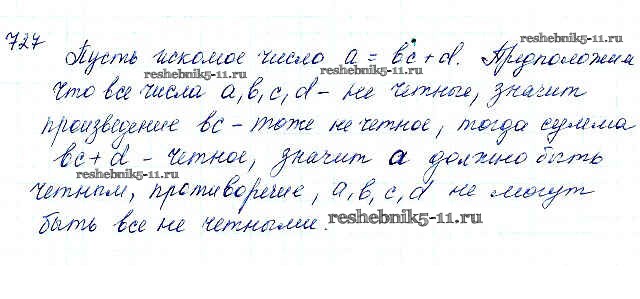 727
Пусть искомое число a = bc + d. Предположим
reshebnik5-11.ru
reshebnik5-11.ru
что все числа a, b, c, d - не четные, значит
произведение bc - тоже не четное, тогда сумма
bc + d - четное, значит a должно быть
reshebnik5-11.ru
четным, противоречие, a, b, c, d не могут
быть все не четными.
reshebnik5-11.ru